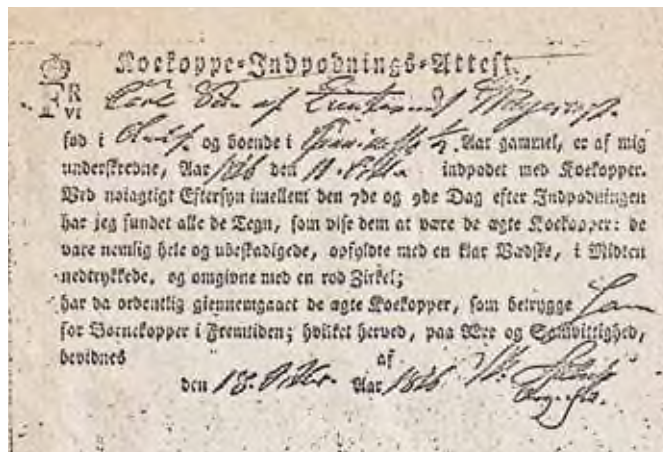 Koekoppe-Indpodnings-Attest.
F R VI
Carl Søn af
fød i og boende i ½ Aar gammel, er af mig
underskrevne, Aar 1826 den 11. indpodet med Koekopper.
Ved nøiagtigt Eftersyn imellem den 7de og 9de Dag efter Indpodningen
har jeg fundet alle de Tegn, som vise dem at være de ægte Koekopper: de
vare nemlig hele og ubeskadigede, opfyldte med en klar Vædske, i Midten
nedtrykkede, og omgivne med en rød Zirkel;
har da ordentlig giennemgaaet de ægte Koekopper, som betrygge
for Børnekopper i Fremtiden; hvilket herved, paa Ære og Samvittighed,
bevidnes af
den 18. Aar 1826